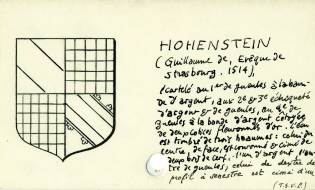 HOHENSTEIN
(Guillaume de, Evêque de
Strasbourg. 1514),
écartelé au 1er de gueules à la ban-
de d'argent, aux 2e et 3e échiqueté
d'argent & de gueules, au 4e de
gueules à la bande d'argent cotoyée
de deux cotices fleuronnées d'or. L'écu
est timbré de trois heaumes: celui du
centre de face, est couronné & cimé de
deux bois de cerf, l'un d'argent, l'au-
tre de gueules; celui de dextre de
profil à senestre est cimé d'un
(T.S.V.P.)